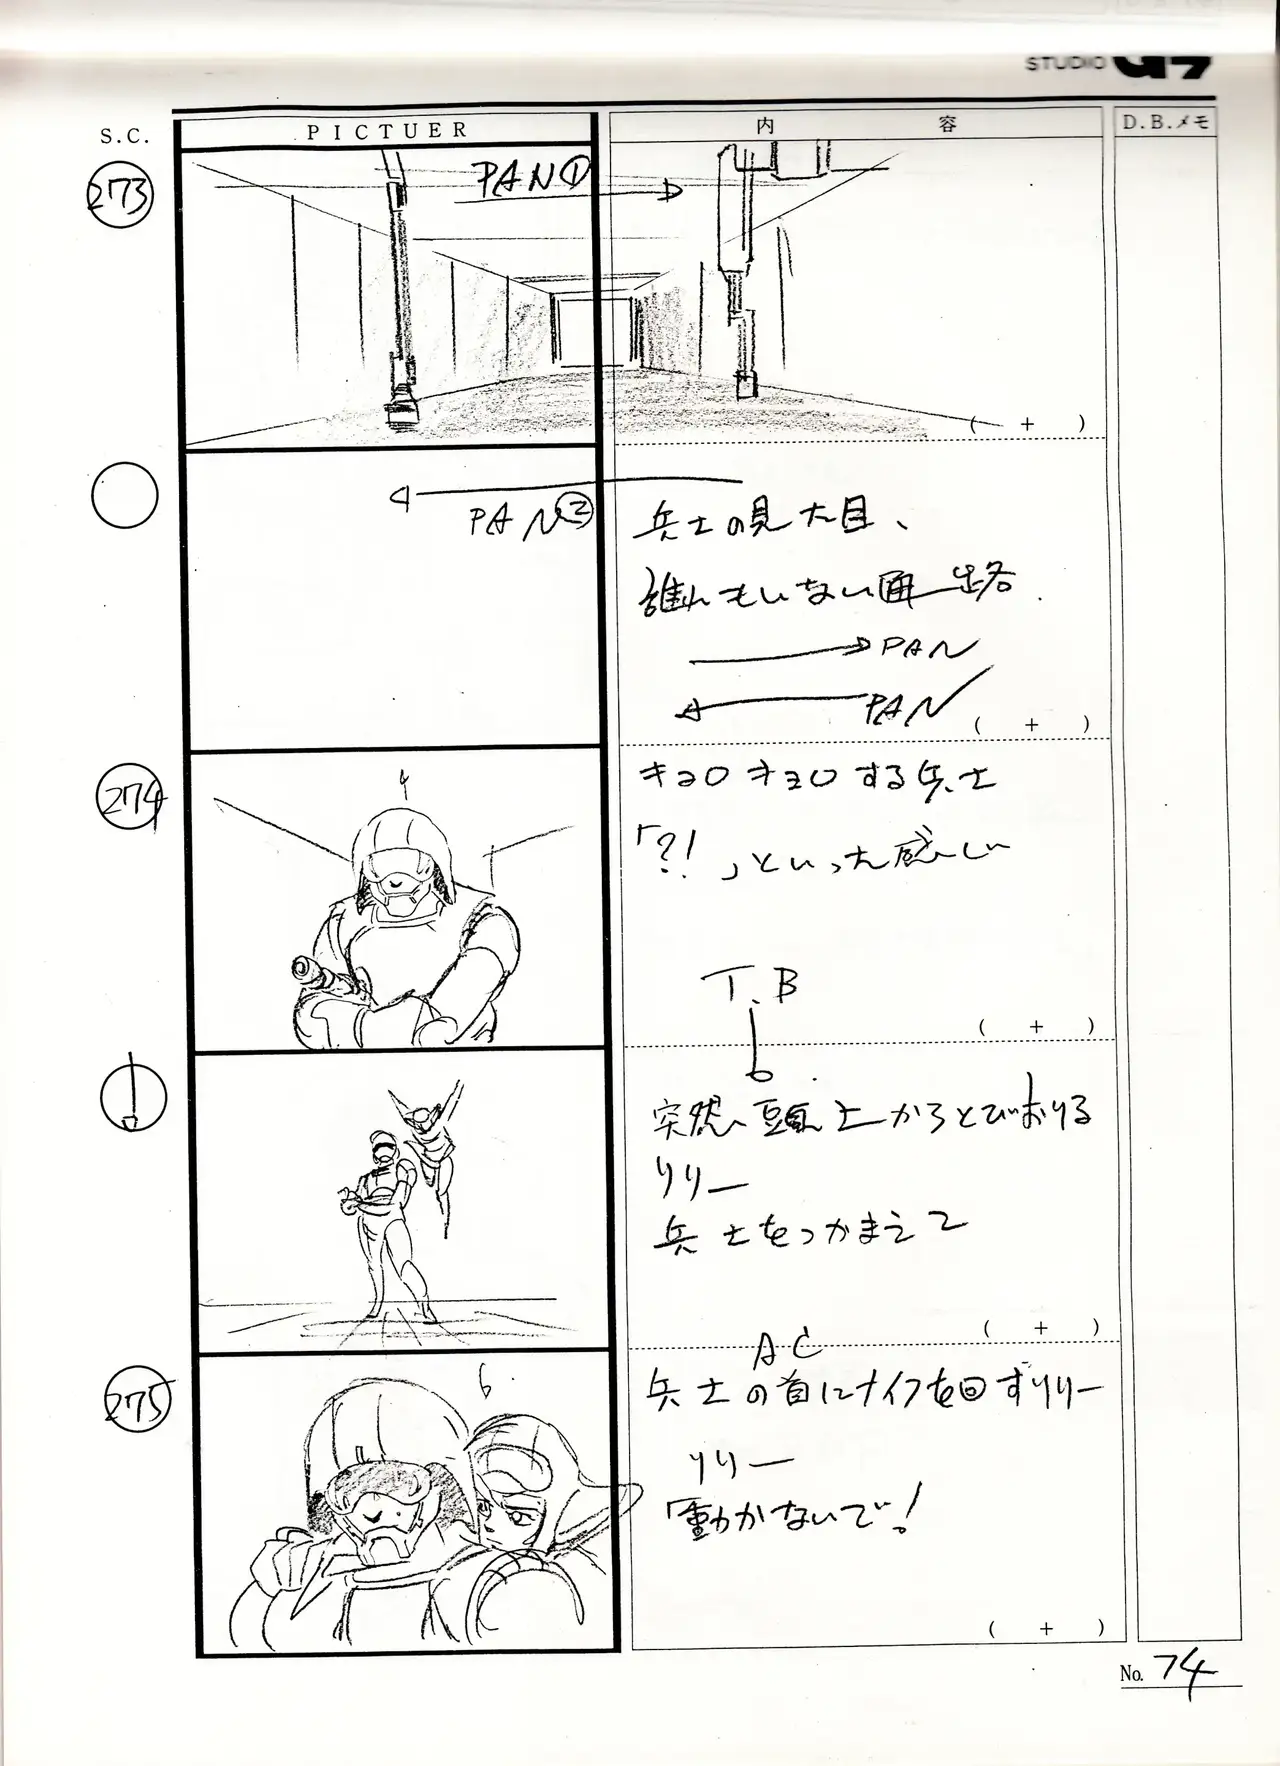 STUDIO
S.C.
PICTUER
内 容
D.B.メモ
273
PAN①
( + )
PAN②
兵士の見た目、
誰もいない通路.
PAN
PAN
( + )
274
キョロキョロする兵士
「?!」といった感じ
T.B
( + )
突然、頭上からとびおりる
リリー
兵士をつかまえて
( + )
AC
275
兵士の首にナイフを回すリリー
リリー
「動かないで!
( + )
No. 74